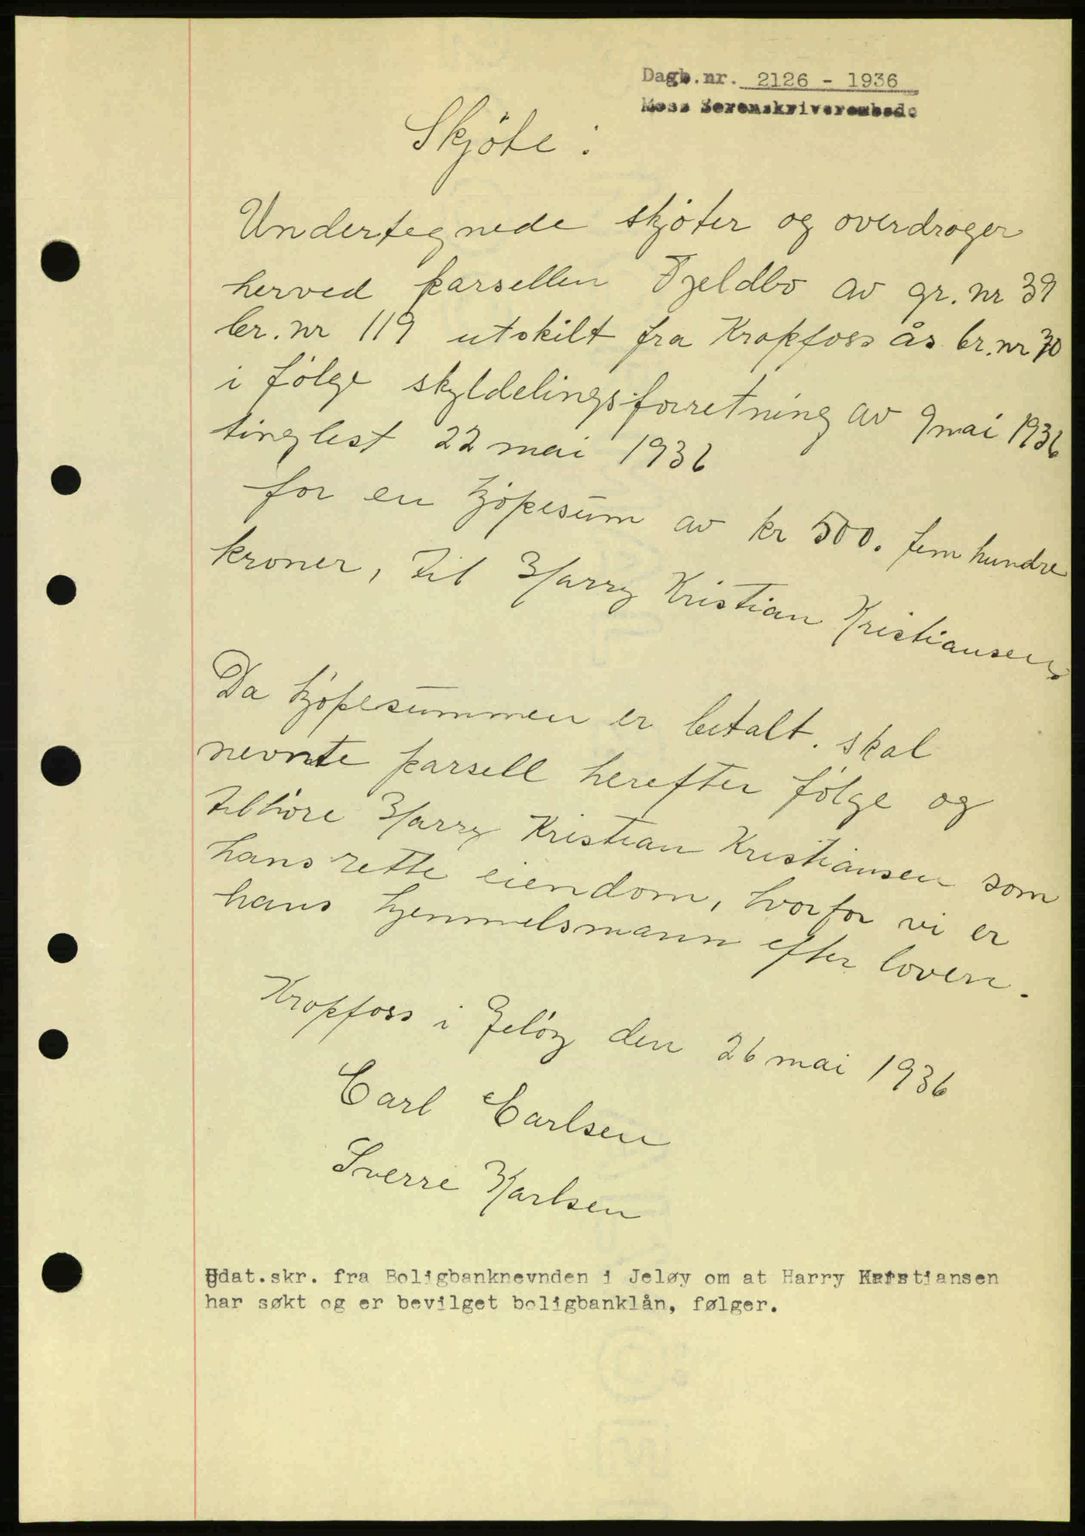 Dagb.nr. 2126 - 1936
Moss Sorenskriverembede
Skjöte :
Undertegnede skjöter og overdrager
herved parsellen Fjeldbo av gr. nr 39
br. nr 119 utskilt fra Kropfoss ås br. nr 30
i fölge skyldelingsforretning av 9 mai 1936
tinglest 22 mai 1936
for en kjöpesum av kr 500. fem hundre
kroner, til Harry Kristian Kristiansen
Da kjöpesummen er betalt. skal
nevnte parsell herefter fölge og
tilhöre Harry Kristian Kristiansen som
hans rette eiendom, hvorfor vi er
hans hjemmelsmann efter loven.
Kropfoss i Jelöy den 26 mai 1936
Carl Carlsen
Sverre Karlsen
Udat.skr. fra Boligbanknevnden i Jeløy om at Harry Kristiansen
har søkt og er bevilget boligbanklån, følger.